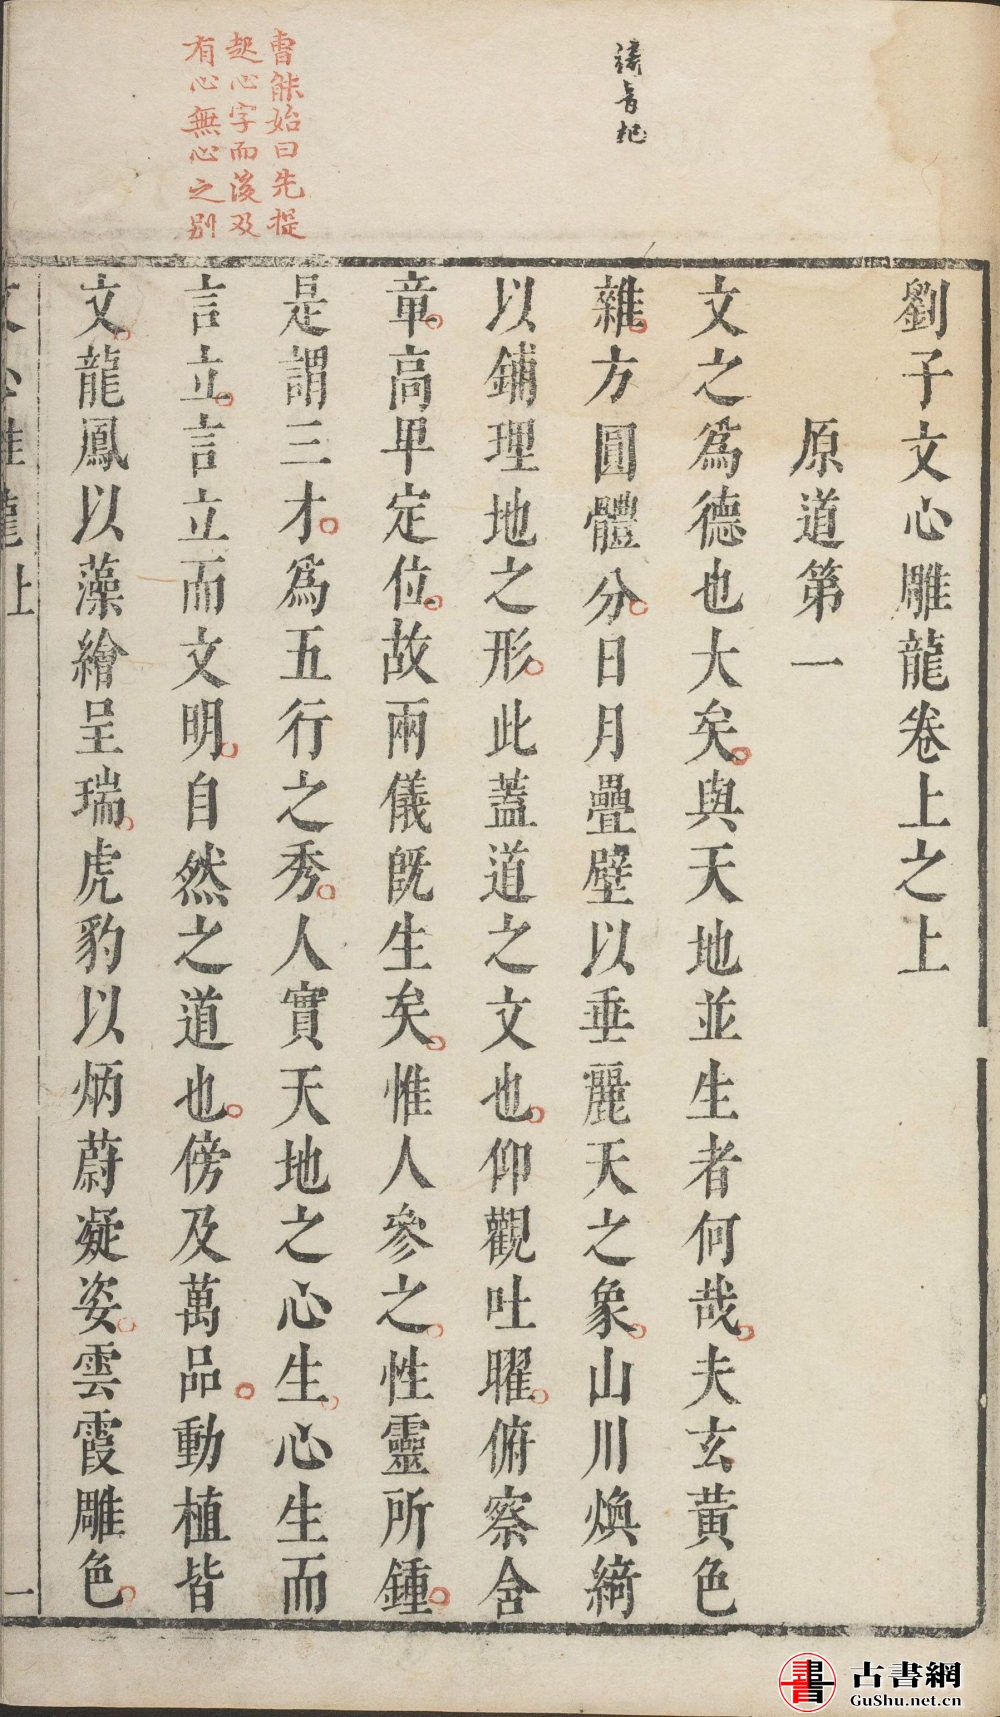 劉子文心雕龍卷上之上
原道第一
文之爲德也大矣與天地並生者何哉夫玄黃色
雜方圓體分日月疊壁以垂麗天之象山川煥綺
以鋪理地之形此蓋道之文也仰觀吐曜俯察含
章高卑定位故兩儀旣生矣惟人參之性靈所鍾
是謂三才爲五行之秀人實天地之心生心生而
言立言立而文明自然之道也傍及萬品動植皆
文龍鳳以藻繪呈瑞虎豹以炳蔚凝姿雲霞雕色
文心雕龍上
一
綺音杞
曹能始曰先提
起心字而後及
有心無心之別
古書網
GuShu.net.cn